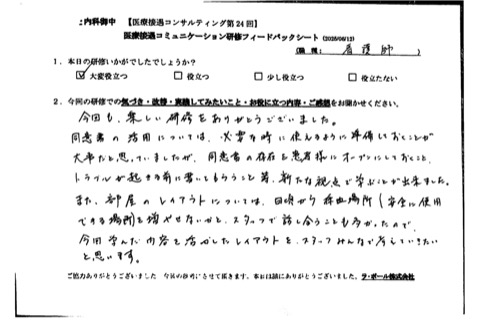 内科御中 【医療接遇コンサルティング第24回】
医療接遇コミュニケーション研修フィードバックシート (2025/06/12)
(職種: 看護師 )
1. 本日の研修いかがでしたでしょうか?
☑大変役立つ □役立つ □少し役立つ □役立たない
2. 今回の研修での気づき・改善・実践してみたいこと・お役に立つ内容・ご感想をお聞かせください。
今回も、楽しい研修をありがとうございました。
同意書の活用については、必要な時に使えるように準備しておくことが
大事だと思っていましたが、同意書の存在を患者様にオープンにしておくこと、
トラブルが起きる前に書いてもらうこと等、新たな視点で学ぶことが出来ました。
また、部屋のレイアウトについては、日頃から採血場所(安全に使用
できる場所)を増やせないかと、スタッフで話し合うことも多かったので、
今回学んだ内容を活かしたレイアウトを、スタッフみんなで考えていきたい
と思います。
ご協力ありがとうございました 今後の参考にさせて頂きます。本日は誠にありがとうございました。ラ・ポール株式会社